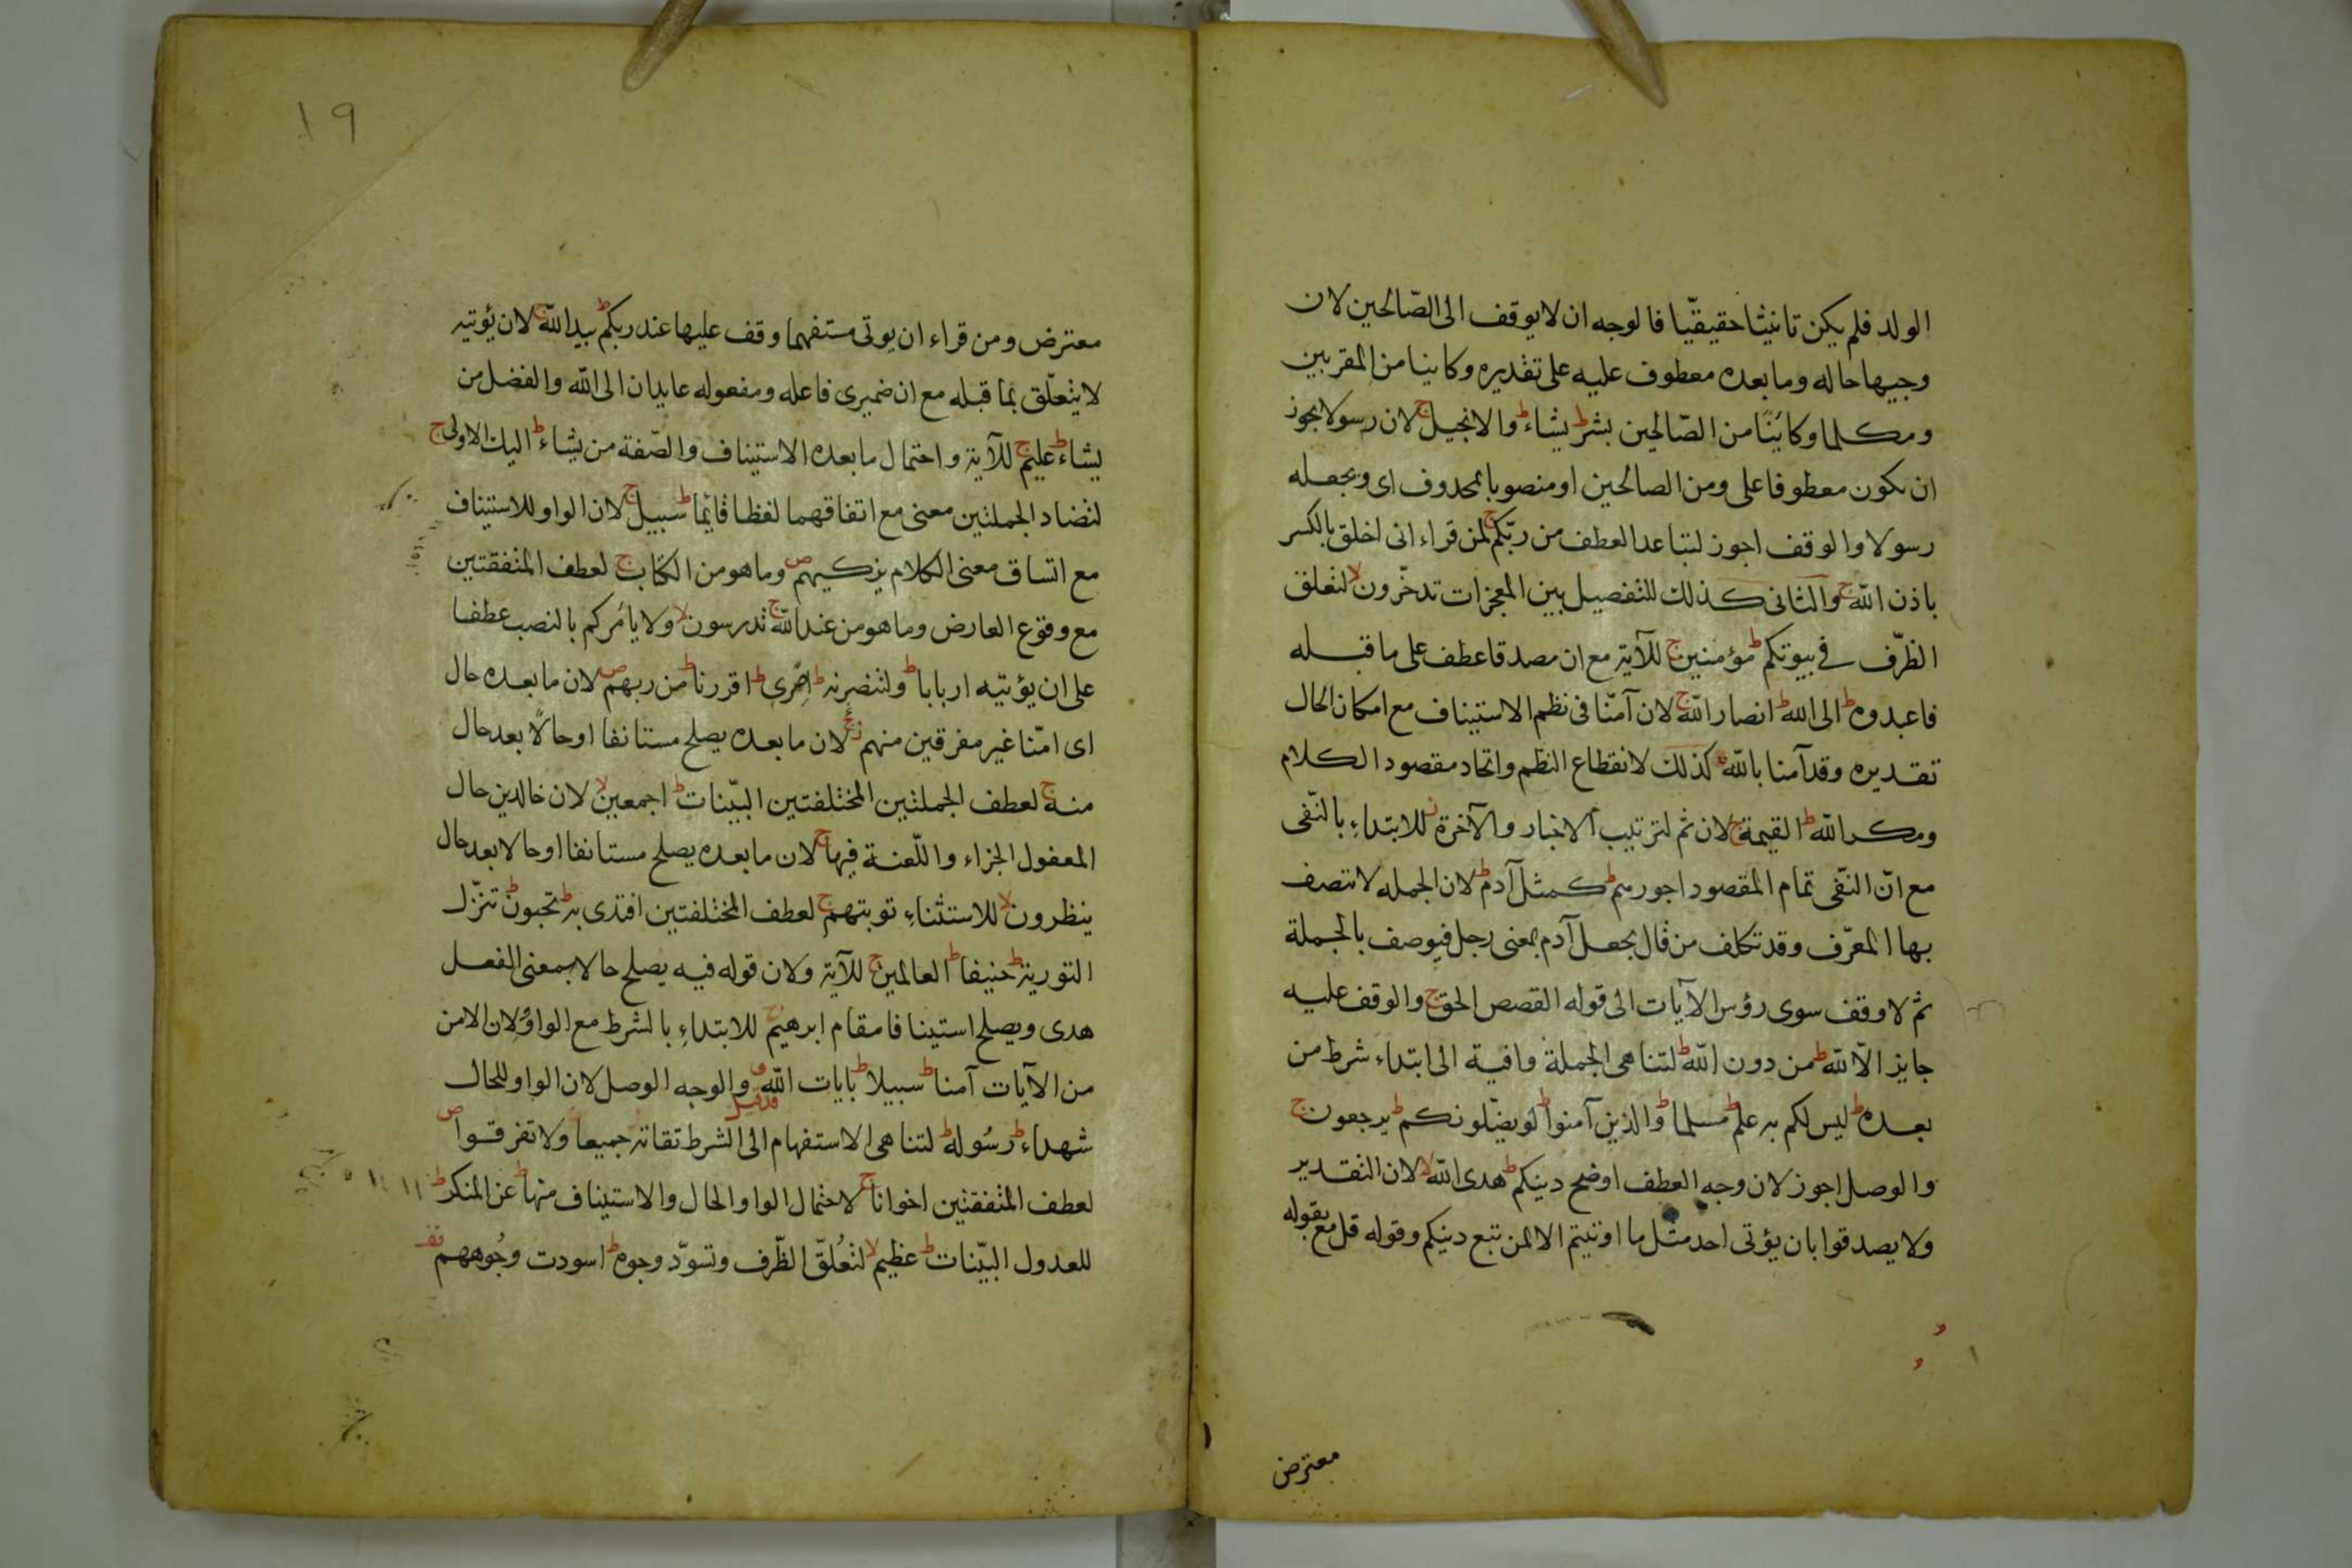 الولد فلم يكن تانيثا حقيقيّا فالوجه ان لا يوقف الى الصّالحين لان
وجيها حاله وما بعده معطوف عليه على تقديره وكاينا من المقربين
ومكلما وكائنًا من الصّالحين بشر ط يشاء ط والانجيل ج لان رسولا يجوز
ان يكون معطوفا على ومن الصالحين او منصوبا بمحذوف اى ويجعله
رسولا والوقف اجوز لتباعد العطف من ربّكم ج لمن قراء انى اخلق بالكسر
باذن الله ج والثانى كذلك للتفصيل بين المعجزات تدخّرون لا لتعلق
الظرّف فى بيوتكم ط مؤمنين ج للآية مع ان مصدقا عطف على ما قبله
فاعبدوه ط الى الله ط انصار الله ج لان آمنّا فى نظم الاستيناف مع امكان الحال
تقديره وقد آمنا بالله كذلك لانقطاع النظم واتحاد مقصود الكلام
ومكر الله ط القيمة ج لان ثم لترتيب الاخبار والآخرة ز للابتداءِ بالنّفى
مع انّ النّفى تمام المقصود اجورهم ط كمثل آدم ط لان الجمله لا تتصف
بها المعرّف وقد تكلف من قال يجعل آدم بمعنى رجل فيوصف بالجملة
ثم لا وقف سوى رؤس الآيات الى قوله القصص الحق ج والوقف عليه
جايز الّا الله ط من دون الله ط لتناهى الجملة وافية الى ابتداء شرط من
بعده ط ليس لكم به علم ط مسلما ط والذين آمنوا ط لو يضّلونكم ط يرجعون ج
والوصل اجوز لان وجه العطف اوضح دينكم ط هدى الله لا لان التقدير
ولا يصدقوا بان يؤتى احد مثل ما اوتيتم الا لمن تبع دينكم وقوله قل مع بقوله
معترض
١٩
معترض ومن قراء ان يوتى مستفهما وقف عليها عند ربكم ط بيد الله ج لان يؤتيه
لا يتعلّق بما قبله مع ان ضميرى فاعله ومفعوله عايدان الى الله والفضل من
يشاء ط عليم ج للآية واحتمال ما بعده الاستيناف والصّفة من يشاء ط اليك الاولى ج
لتضاد الجملتين معنى مع اتفاقهما لفظا قائما ط سبيل ج لان الواو للاستيناف
مع اتساق معنى الكلام يزكيهم ص وما هو من الكتاب ج لعطف المتفقتين
مع وقوع العارض وما هو من عند الله ج تدرسون لا ولا يأمركم بالنصب عطفا
على ان يؤتيه اربابا ط ولتنصرنه ط اصرى ط اقررنا ط من ربهم ص لان ما بعده حال
اى امّنا غير مفرقين منهم ز لان ما بعده يصلح مستانفا او حالًا بعد حال
منه ج لعطف الجملتين المختلفتين البيّنات ط اجمعين لا لان خالدين حال
المعفول الجزاء واللّعنة فيها ج لان ما بعده يصلح مستانفا او حالا بعد حال
ينظرون لا للاستثناءِ توبتهم ج لعطف المختلفتين افتدى به ط تحبون ط تنزّل
التورية ط حنيفا ط العالمين ج للآية ولان قوله فيه يصلح حالا بمعنى الفعل
هدى ويصلح استينافا مقام ابرهيم للابتداءِ بالشرط مع الواو ولان الامن
من الآيات آمنا ط سبيلا ط بايات الله قد قيل والوجه الوصل لان الواو للحال
شهداء ط رسُوله ط لتناهى الاستفهام الى الشرط تقاته جميعا ولا تفرقوا ص
لعطف المتفقتين اخوانا ج لاحتمال الواو الحال والاستيناف منها ط عن المنكر ط
للعدول البيّنات ط عظيم لا لتعُلّق الظّرف وتسوّد وجوه ط اسودت وجُوههم قف